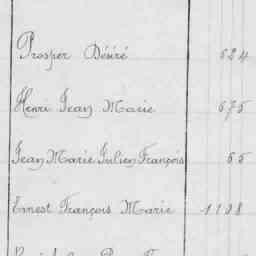 Prosper Désiré 524
Henri Jean Marie 675
Jean Marie Julien François 55
Ernest François Marie 1198